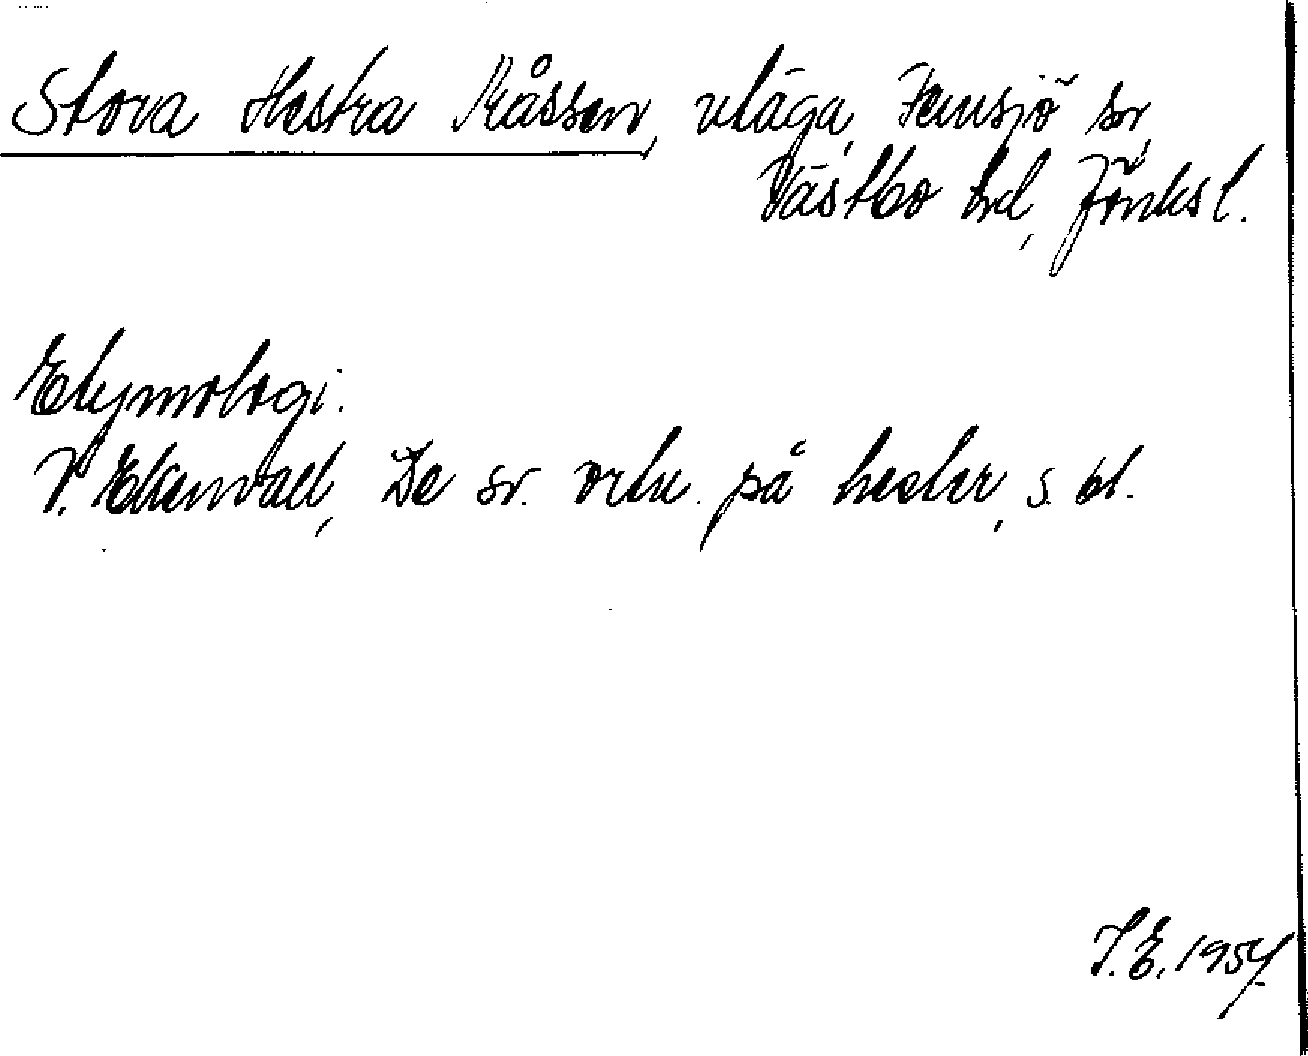 Stora Hestra Måssen, utäga, Femsjö sn,
Västbo hd, Jönk.s l.
Etymologi.
V. Ekenvall, De sv. ortn. på hester, s. 61.
I.E. 1954